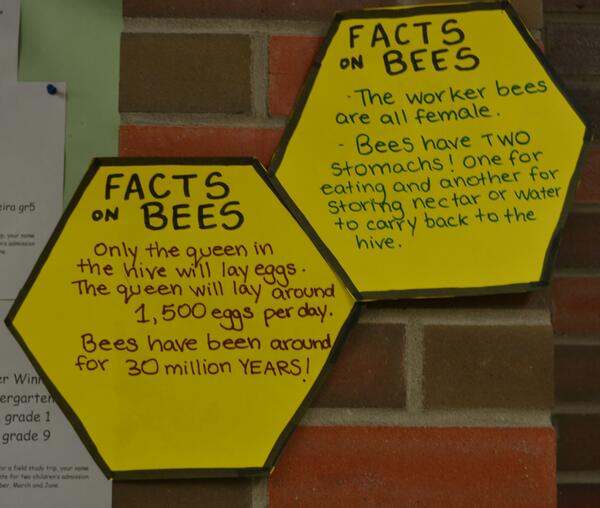 FACTS
ON BEES
· The worker bees
are all female.
- Bees have TWO
stomachs! one for
eating and another for
storing nectar or water
to carry back to the
hive.
FACTS
ON BEES
Only the queen in
the hive will lay eggs.
The queen will lay around
1,500 eggs per day.
Bees have been around
for 30 million YEARS!
eira gr5
p, your name
n's admission
er Winn
ergarten
grade 1
grade 9
or a field study trip, your name
ate for two children's admission
ber, March and June.